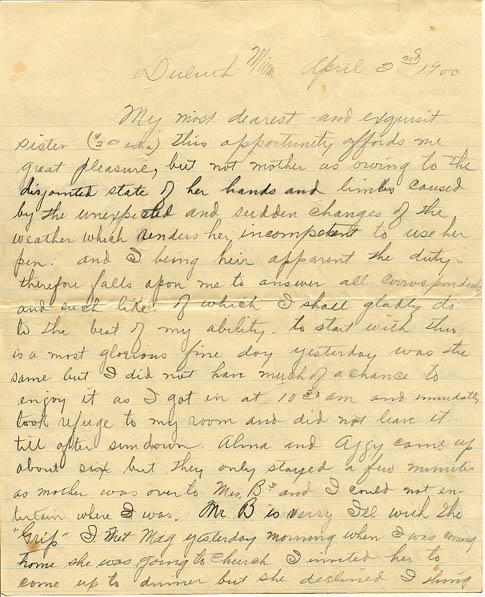 Duluth Minn April 2nd, 1900
My most dearest and exquisit
sister ( extra) this opportunity affords me
great pleasure, but not mother as owing to the
disjointed state of her hands and limbs caused
by the unexpected and sudden changes of the
weather which renders her incompetent to use her
pen: and I being heir apparent the duty
therefore falls apon me to answer all correspondents
and such like of which I shall gladly do
to the best of my ability. to start with this
is a most glorious fine day yesterday was the
same but I did not have much of a chance to
enjoy it as I got in at 10 am and immediatly
took refuge to my room and did not leave it
till after sundown. Alma and Aggy came up
about six but they only stayed a few minutes
as mother was over to Mrs Bs and I could not en-
tertain where I was. Mr B is verry Ill with the
"Grip" I met Mag yesterday morning when I was coming
home she was going to church I invited her to
come up to dinner but she declined I